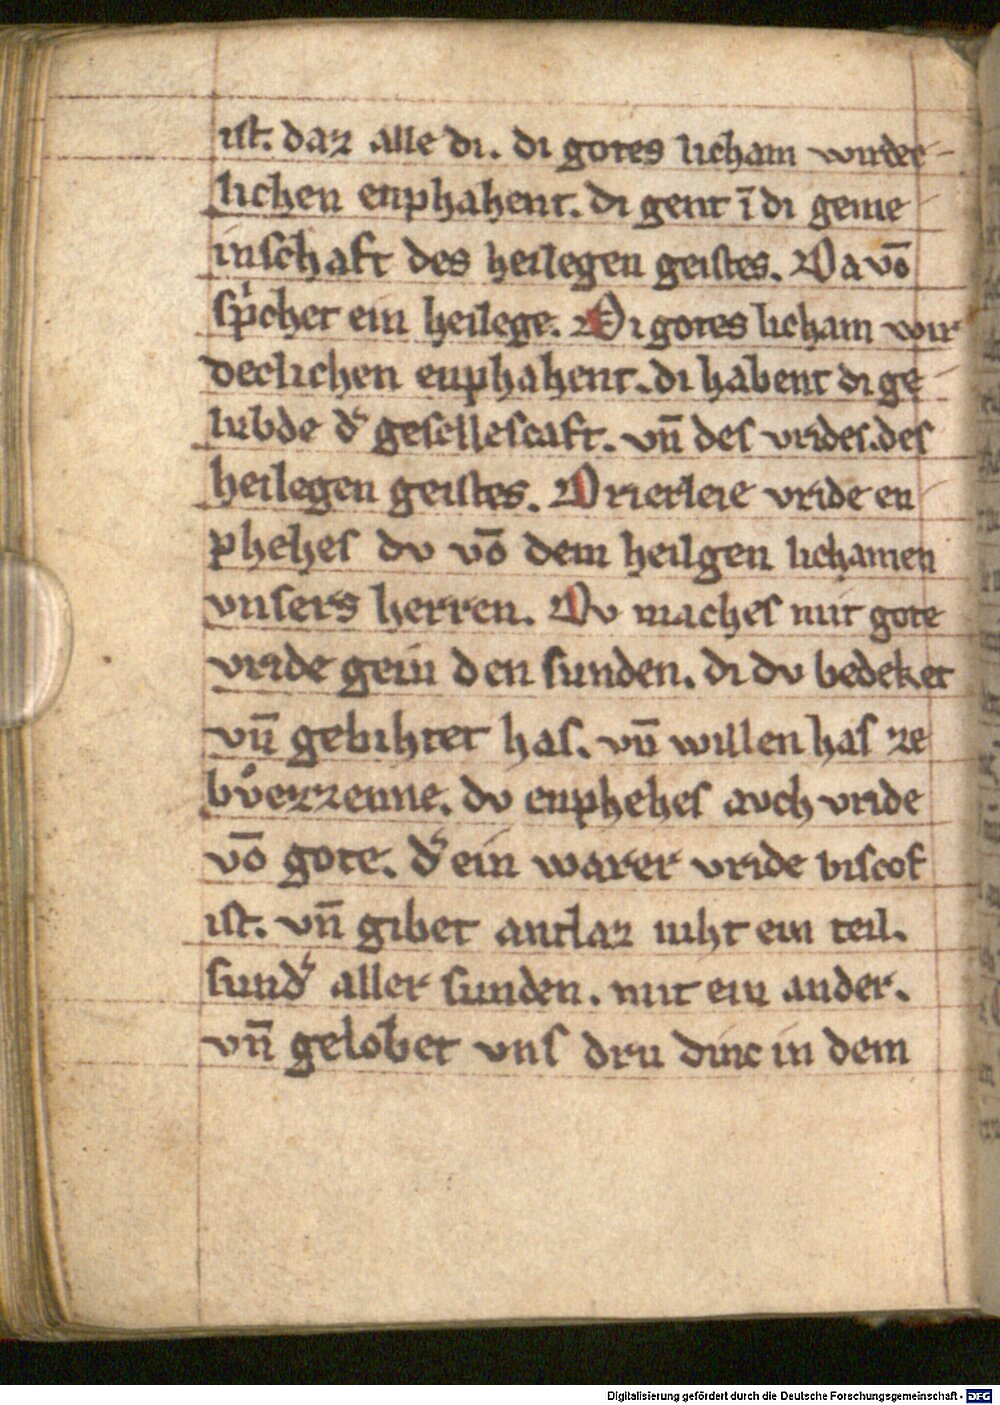 ist. daz alle di. di gotes licham wirdec-
lichen enphahent. di gent ī di geme
inschaft des heilegen geistes. Da vō
sp̾chet ein heilege. Di gotes licham wir
declichen enphahent. di habent di ge
lubde d͛ gesellescaft. vn̄ des vrides. des
heilegen geistes. Drierleie vride en
phehes du vō dem heilgen lichamen
vnsers herren. Du maches mit gote
vride gein den sunden. di du bedeket
vn̄ gebihtet has. vn̄ willen has ze
bůezzenne. du enphehes auch vride
vō gote. d͛ ein warer vride biscof
ist. vn̄ gibet antlaz niht ein teil.
sund͛ aller sunden. mit ein ander.
vn̄ gelobet vns dru dinc in dem
Digitalisierung gefördert durch die Deutsche Forschungsgemeinschaft - DFG